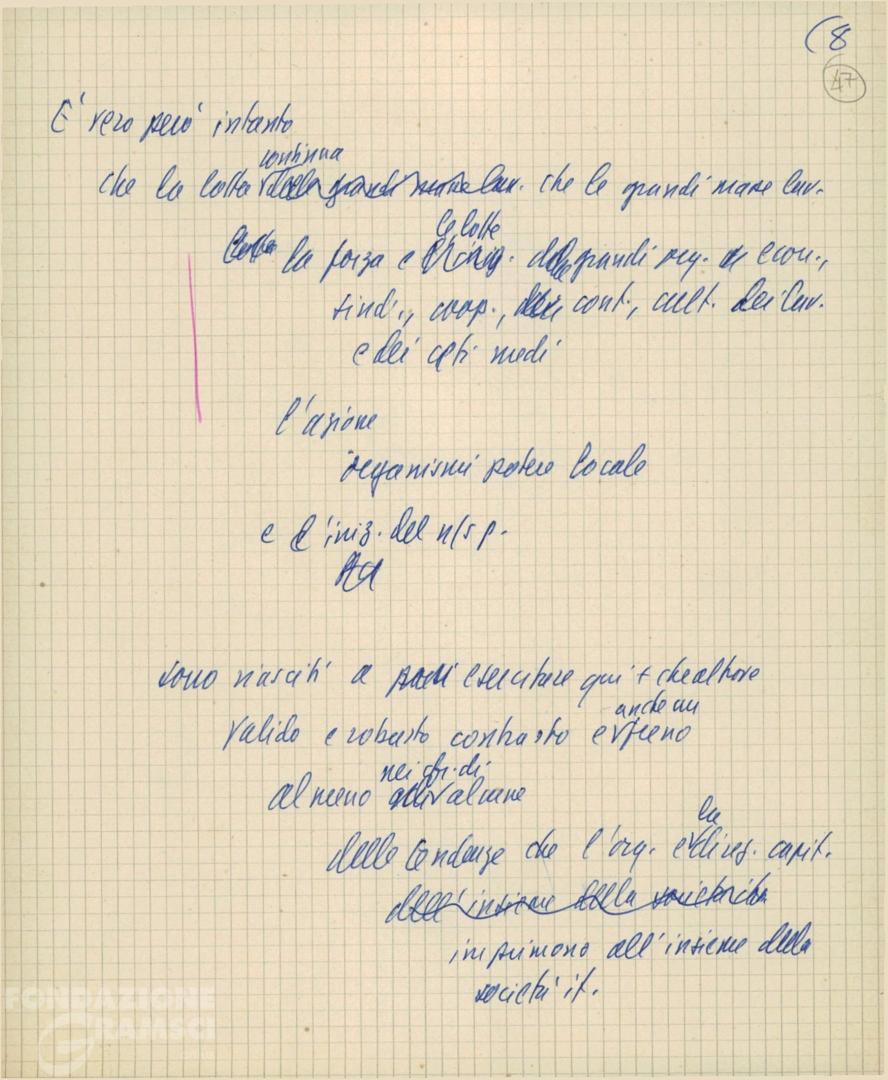 (8
47
E' vero però intanto
continua
che la lotta della grandi masse lav. che le grandi masse lav.
le lotte
la forza e l'iniz. delle grandi org. econ.,
sind., coop., cont., cult. dei lav.
e dei ceti medi
l'azione
organismi potere locale
e l'iniz. del n/s p.
sono riusciti a esercitare qui + che altrove
anche un
valido e robusto contrasto e freno
nei cfr. di
almeno alcune
la
delle tendenze che l'org. e direz. capit.
dell'insieme della società it.
imprimono all'insieme della
società it.
FONDAZIONE
GRAMSCI